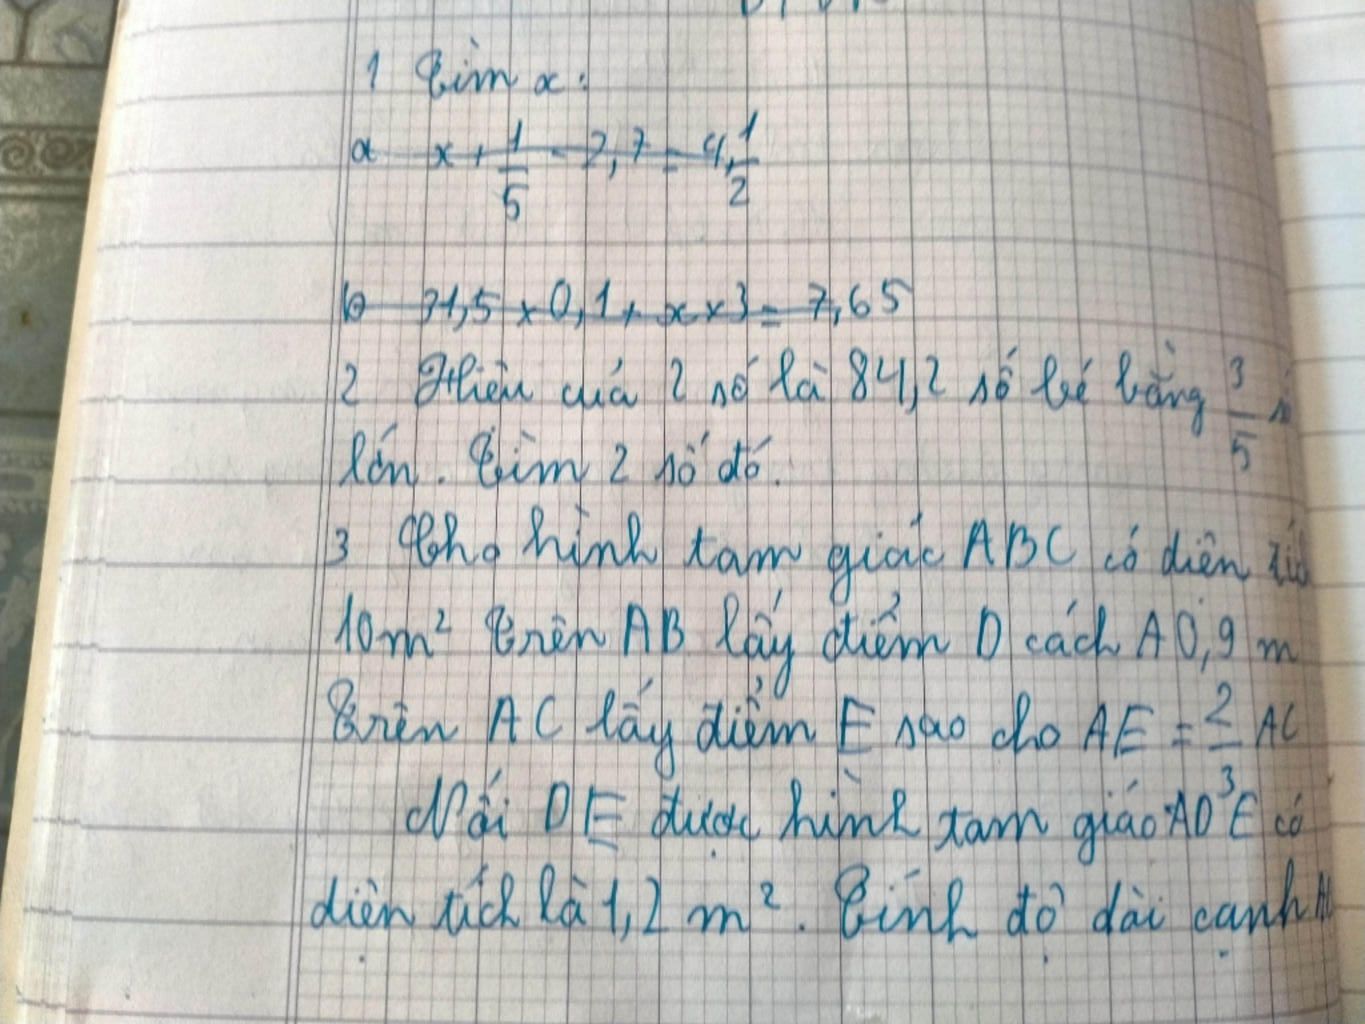 1 Tìm x:
a x + 1/5 - 2,7 = 4 1/2
b 31,5 x 0,1 + x x 3 = 7,65
2 Hiệu của 2 số là 84,2 số bé bằng 3/5
lớn. Tìm 2 số đó.
3 Cho hình tam giác ABC có diện
10m² Trên AB lấy điểm D cách A 0,9 m
Trên AC lấy điểm E sao cho AE = 2/3 AC
Nối DE được hình tam giác ADE có
diện tích là 1,2 m². Tính độ dài cạnh